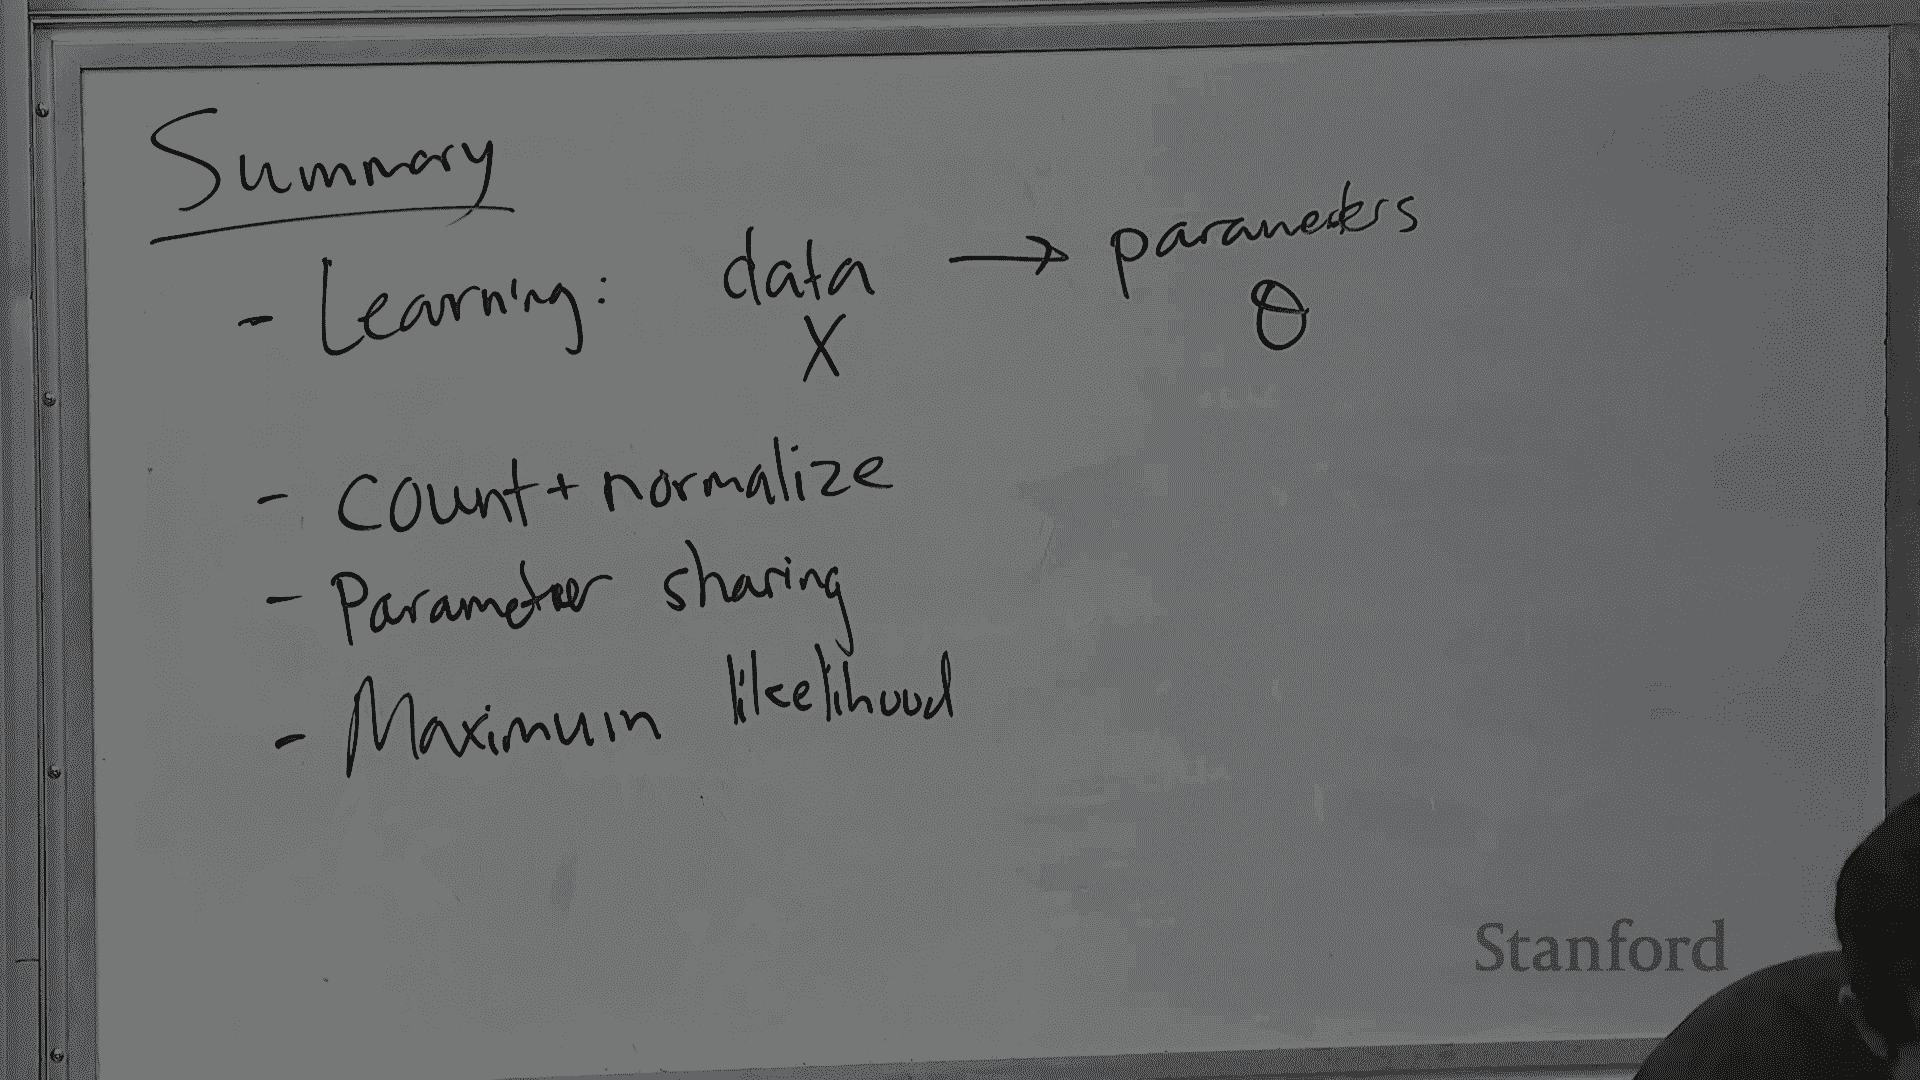 Summary
- Learning: data → parameters
X θ
- Count + normalize
- Parameter sharing
- Maximum likelihood
Stanford